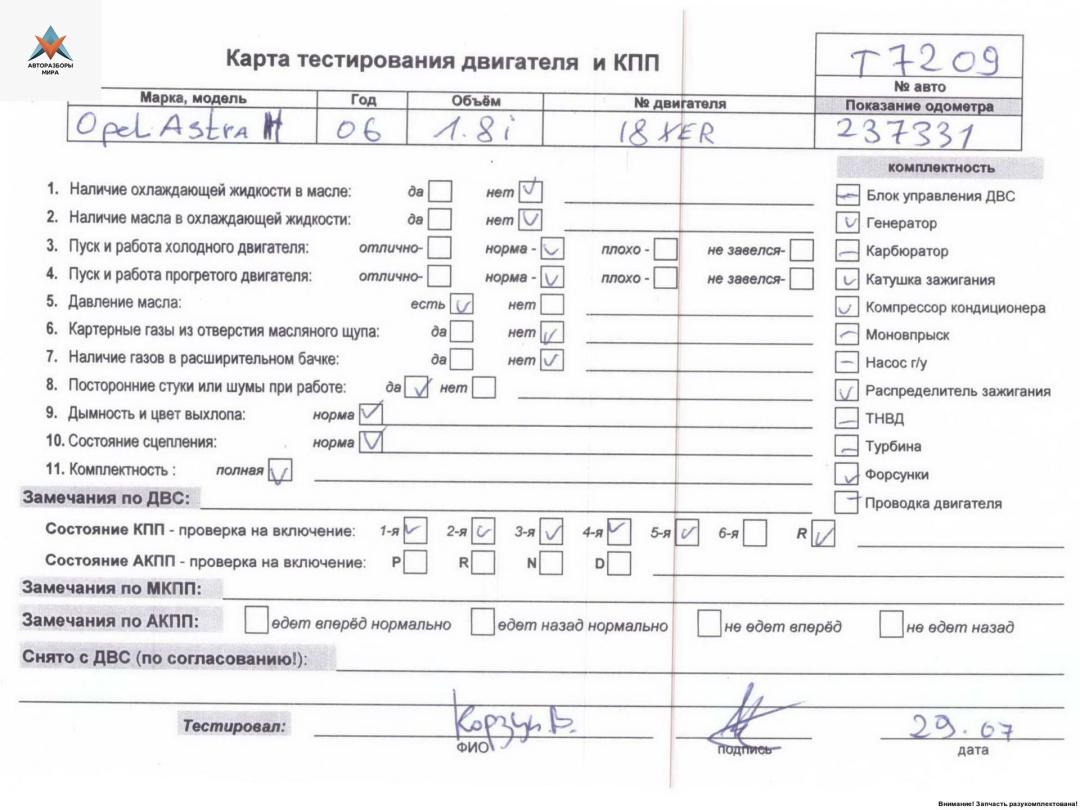 АВТОРАЗБОРЫ
МИРА
Карта тестирования двигателя и КПП
T7209
№ авто
Марка, модель Год Объём № двигателя Показание одометра
Opel Astra H 06 1.8i 18XER 237331
комплектность
1. Наличие охлаждающей жидкости в масле: да нет
Блок управления ДВС
2. Наличие масла в охлаждающей жидкости: да нет
Генератор
3. Пуск и работа холодного двигателя: отлично- норма - плохо - не завелся-
Карбюратор
4. Пуск и работа прогретого двигателя: отлично- норма - плохо - не завелся-
Катушка зажигания
5. Давление масла: есть нет
Компрессор кондиционера
6. Картерные газы из отверстия масляного щупа: да нет
Моновпрыск
7. Наличие газов в расширительном бачке: да нет
Насос г/у
8. Посторонние стуки или шумы при работе: да нет
Распределитель зажигания
9. Дымность и цвет выхлопа: норма
ТНВД
10. Состояние сцепления: норма
Турбина
11. Комплектность : полная
Форсунки
Замечания по ДВС:
Проводка двигателя
Состояние КПП - проверка на включение: 1-я 2-я 3-я 4-я 5-я 6-я R
Состояние АКПП - проверка на включение: P R N D
Замечания по МКПП:
Замечания по АКПП: едет вперёд нормально едет назад нормально не едет вперёд не едет назад
Снято с ДВС (по согласованию!):
Тестировал: Корзун В. 29.07
ФИО подпись дата
Внимание! Запчасть разукомплектована!